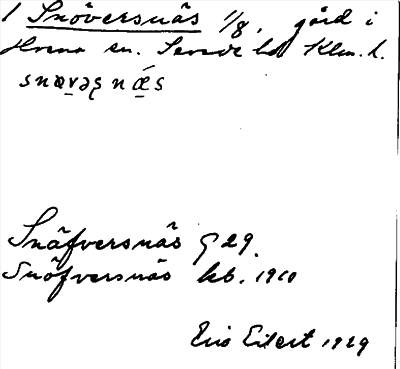 1 Snöversnäs 1/8, gård i
Hvena sn. Sevede hd Klm. l.
snœvəʂnǽs
Snäfversnäs G 29.
Snöfversnäs kb. 1910
Eilert 1929